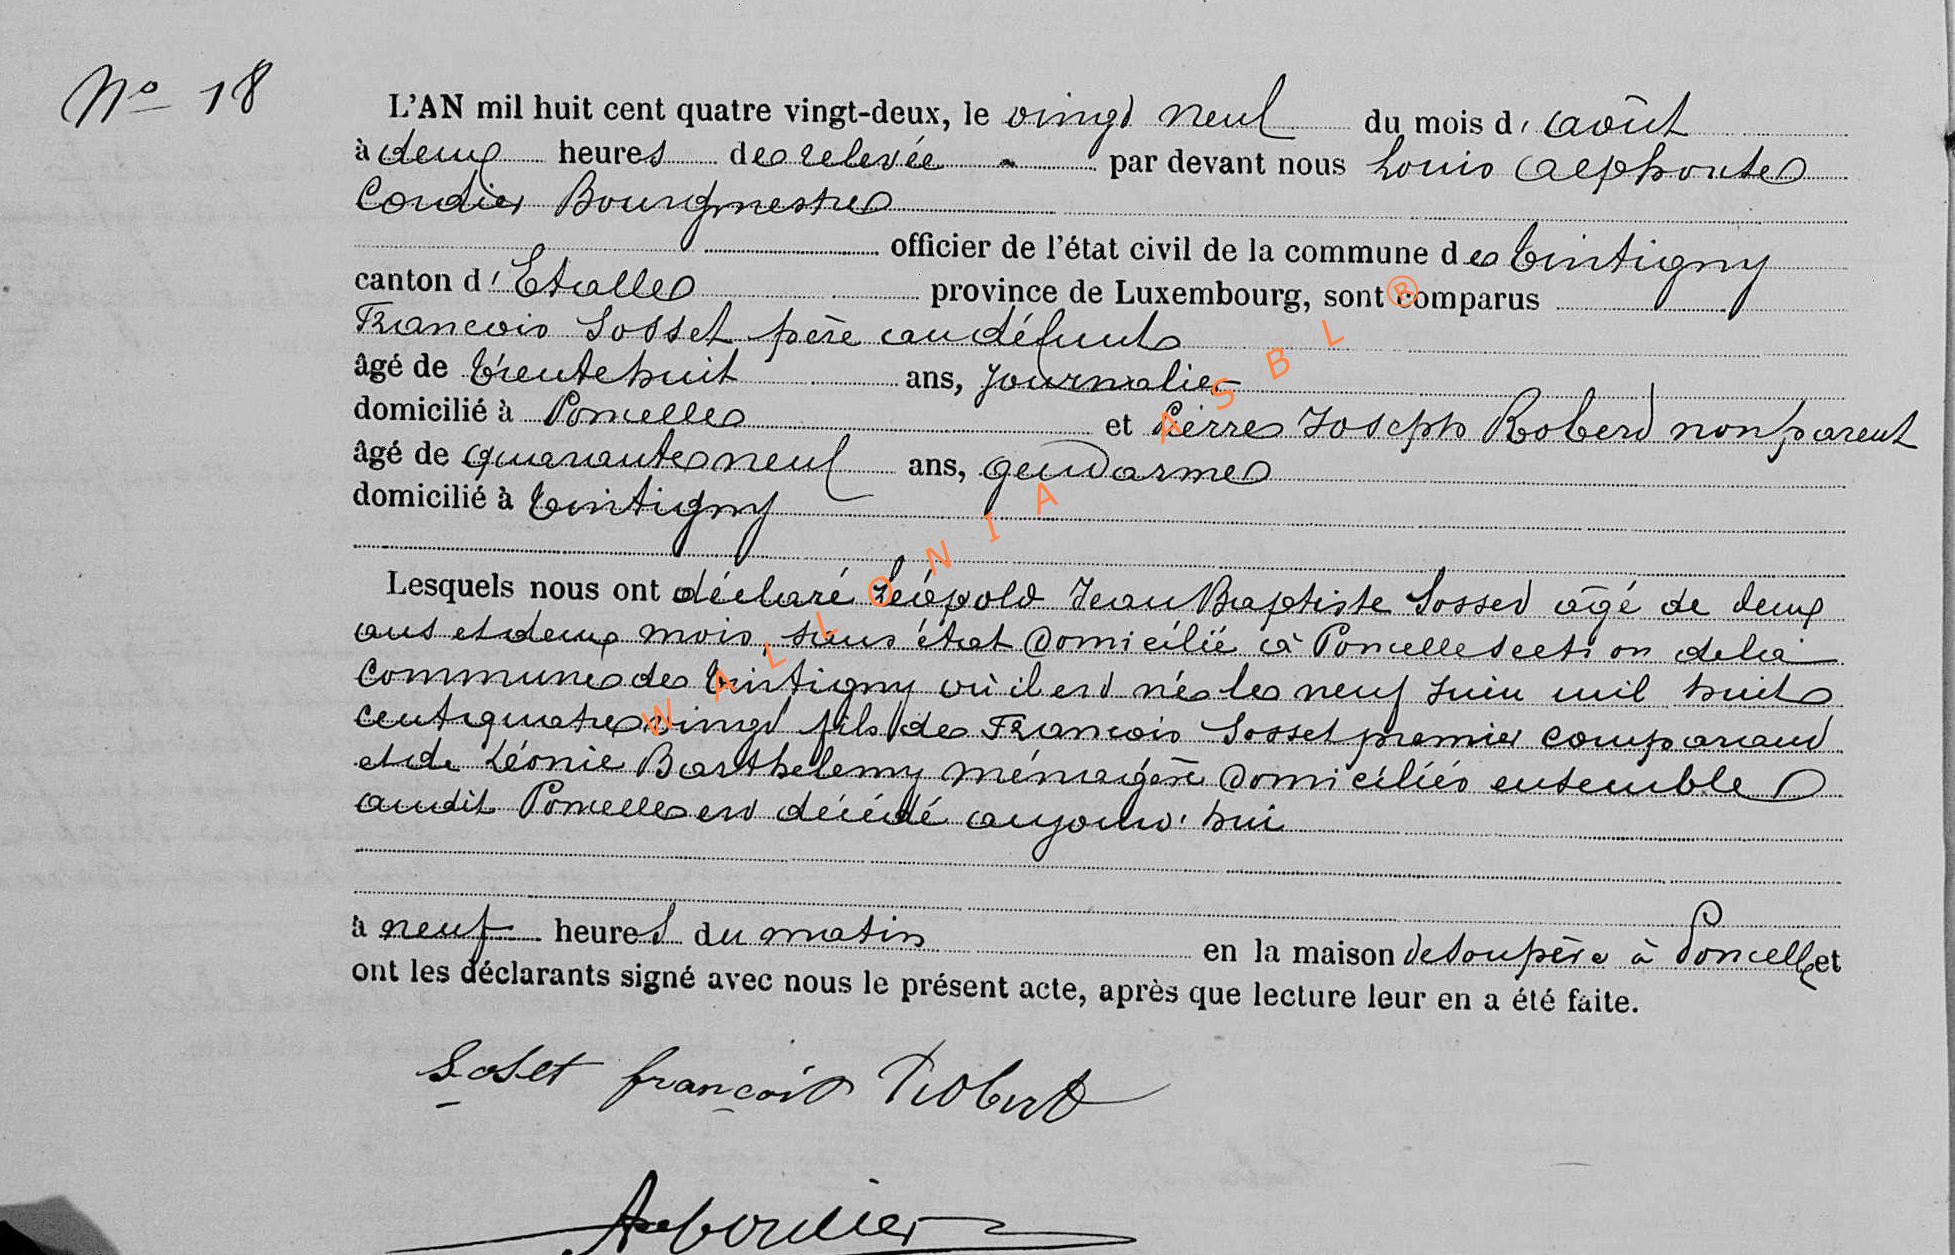 No 18
L'AN mil huit cent quatre vingt-deux, le vingt neuf du mois d'août
à deux heures de relevée par devant nous Louis Alphonse
Cordier Bourgmestre
officier de l'état civil de la commune de Tintigny
canton d'Etalle province de Luxembourg, sont comparus
Francois Sosset père au défunt
âgé de trente huit ans, journalier
domicilié à Poncelle et Pierre Joseph Robert non parent
âgé de quarante neuf ans, gendarme
domicilié à Tintigny
Lesquels nous ont déclaré Léopold Jean Baptiste Sosset âgé de deux
ans et deux mois, sans état domicilié à Poncelle section de la
commune de Tintigny où il est né le neuf Juin mil huit
cent quatre vingt fils de Francois Sosset premier comparant
et de Léonie Barthelemy ménagère domiciliés ensemble
audit Poncelle est décédé aujourd'hui
à neuf heures du matin en la maison de son père à Poncelle et
ont les déclarants signé avec nous le présent acte, après que lecture leur en a été faite.
Soset françois Robert
ACordier
WALLONIA ASBL ®